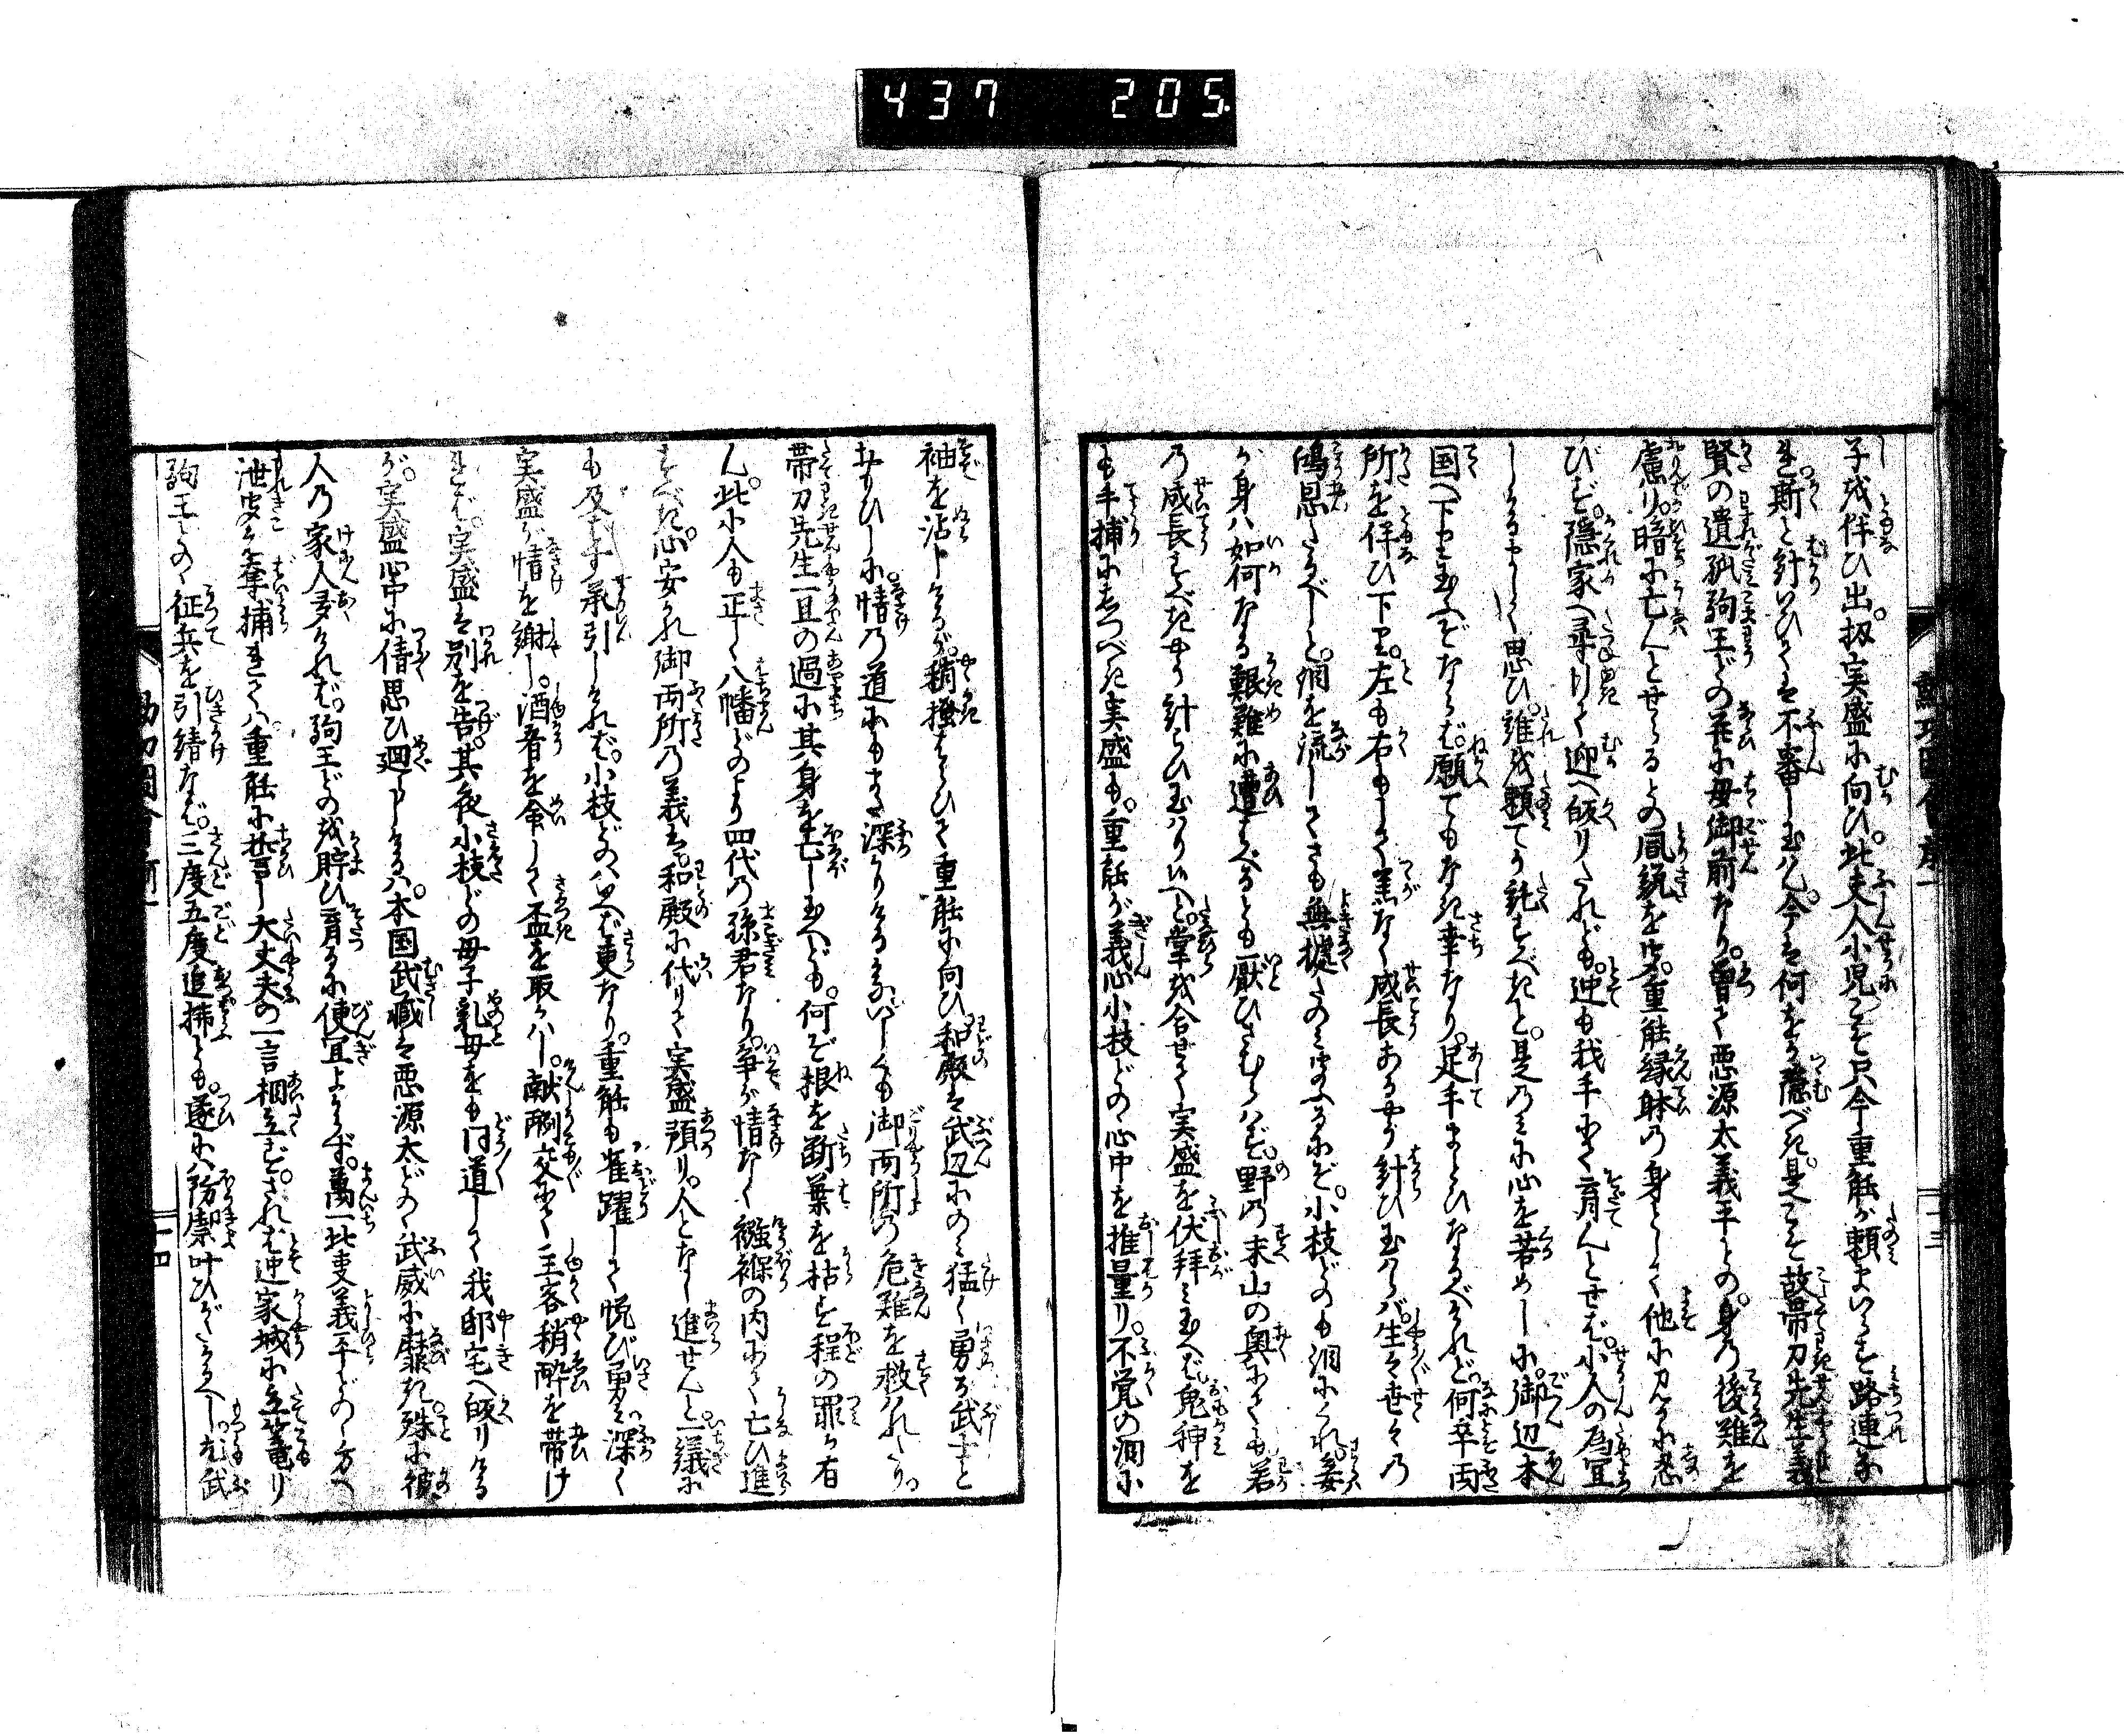 437 205
子を伴ひ出。扨実盛に向ひ。此夫人小児こそ只今重能が頼まいらす路連な
れ。斯と計いひては不審し玉はん。今は何をか隠べき。是こそ故帯刀先生義
賢の遺孤駒王どの并に母御前なり。曽て悪源太義平どの。身乃後難を
慮り。暗に亡んとせらるとの風説を聞。重能縁躰の身として他に見るに忍
びず。隠家へ尋行て迎へ皈りたれども。迚も我手にて育んとせば。小人の為宜
しかるまじく思ひ。誰を頼てか託すべきと。是乃みに心を苦めしに。御辺本
国へ下り玉へぞならば。願てもなき幸なり。足手まとひなるべけれど。何卒両
所を伴ひ下り。左も右もして恙なく成長あるやう計ひ玉はらば。生々世々乃
鴻恩たるべしと。涙を流してさも無拠たのみ聞ゆるにぞ。小枝どのも涙にくれ。妾
が身ハ如何なる艱難に遭んとも厭ひさむらはず。野の末山の奥にても若
乃成長すべきやう計らひ玉はり候へと。掌を合せて実盛を伏拝み玉へば。鬼神を
も手捕にすべき実盛も。重能が義心小枝どの心中を推量り。不覚の涙に
袖を沾しけるが。稍搔はらひて重能に向ひ。和殿は武辺にのミ猛く勇る武士と
おもひしに。情乃道にもまた深かりけるよな。いしくも御両所の危難を救ハれたり。
帯刀先生一旦の過に其身を亡し玉へども。何ぞ根を断葉を枯す程の罪か有
ん。此小人も正しく八幡どのより四代の孫君なり。争か情なく襁褓の内にて亡ひ進
すべき。心安かれ御両所乃義は。和殿に代りて実盛預り。人となし進せんと。一議に
も及ばず承引しければ。小枝どのハいへば更なり。重能も雀躍して悦び勇み。深く
実盛が情を謝し。酒肴を命じて盃を取かハし。献酬交々にて主客稍酔を帯け
れば。実盛は別を告。其夜小枝どの母子乳母をも同道して我邸宅へ皈りける
が。実盛心中に倩思ひ廻しけるハ。本国武蔵は悪源太どの武威に靡き。殊に彼
人乃家人多ければ。駒王どのを貯ひ育るに便宜よからず。萬一此事義平どの方へ
泄聞え奪捕れてハ。重能に誓し大丈夫の一言相立ず。されば迚家城に立篭り
駒王どの征兵を引請なば。三度五度追払とも。遂にハ防禦叶ひがたかるべし。尤武
十三
十四